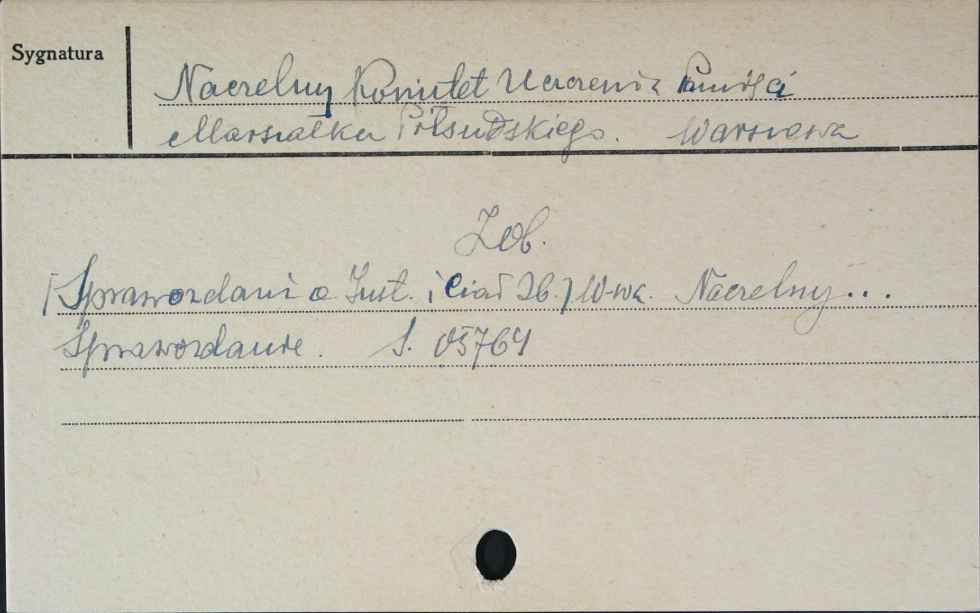 Sygnatura
Naczelny Komitet Uczczenia Pamięci
Marszałka Piłsudskiego. Warszawa
Zob.
[Sprawozdania Inst. i Ciał Zb.] W-wa. Naczelny...
Sprawozdanie. S. 05764